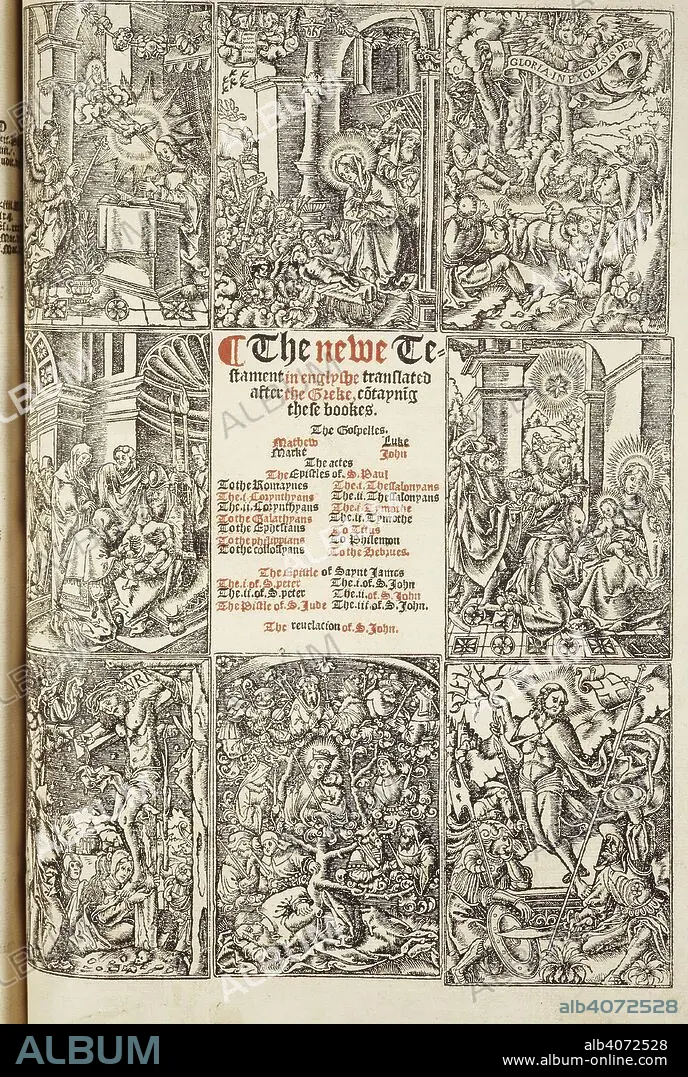 GLORIA IN EXCELSIS DEO
¶ The newe Te-
stament in englyshe translated
after the Greke, cōtaynig
these bookes.
The Gospelles.
Mathew Luke
Marke John
The actes
The Epistles of S. Paul
To the Romaynes The.i. Thessalonyans
The.i. Corynthyans The.ii. Thessalonyans
The.ii. Corynthyans The.i. Tymothe
To the Galathyans The.ii. Tymothe
To the Ephesians To Titus
To the philippians To Philemon
To the collossyans To the Hebrues.
The Epistle of Saynt James
The.i. of S. peter The.i. of S. John
The.ii. of S. peter The.ii. of S. John
The Pistle of S. Jude The.iii. of S. John.
The revelacion of S. John.
INRI
alb4072528
ALBUM
alb4072528
www.album-online.com